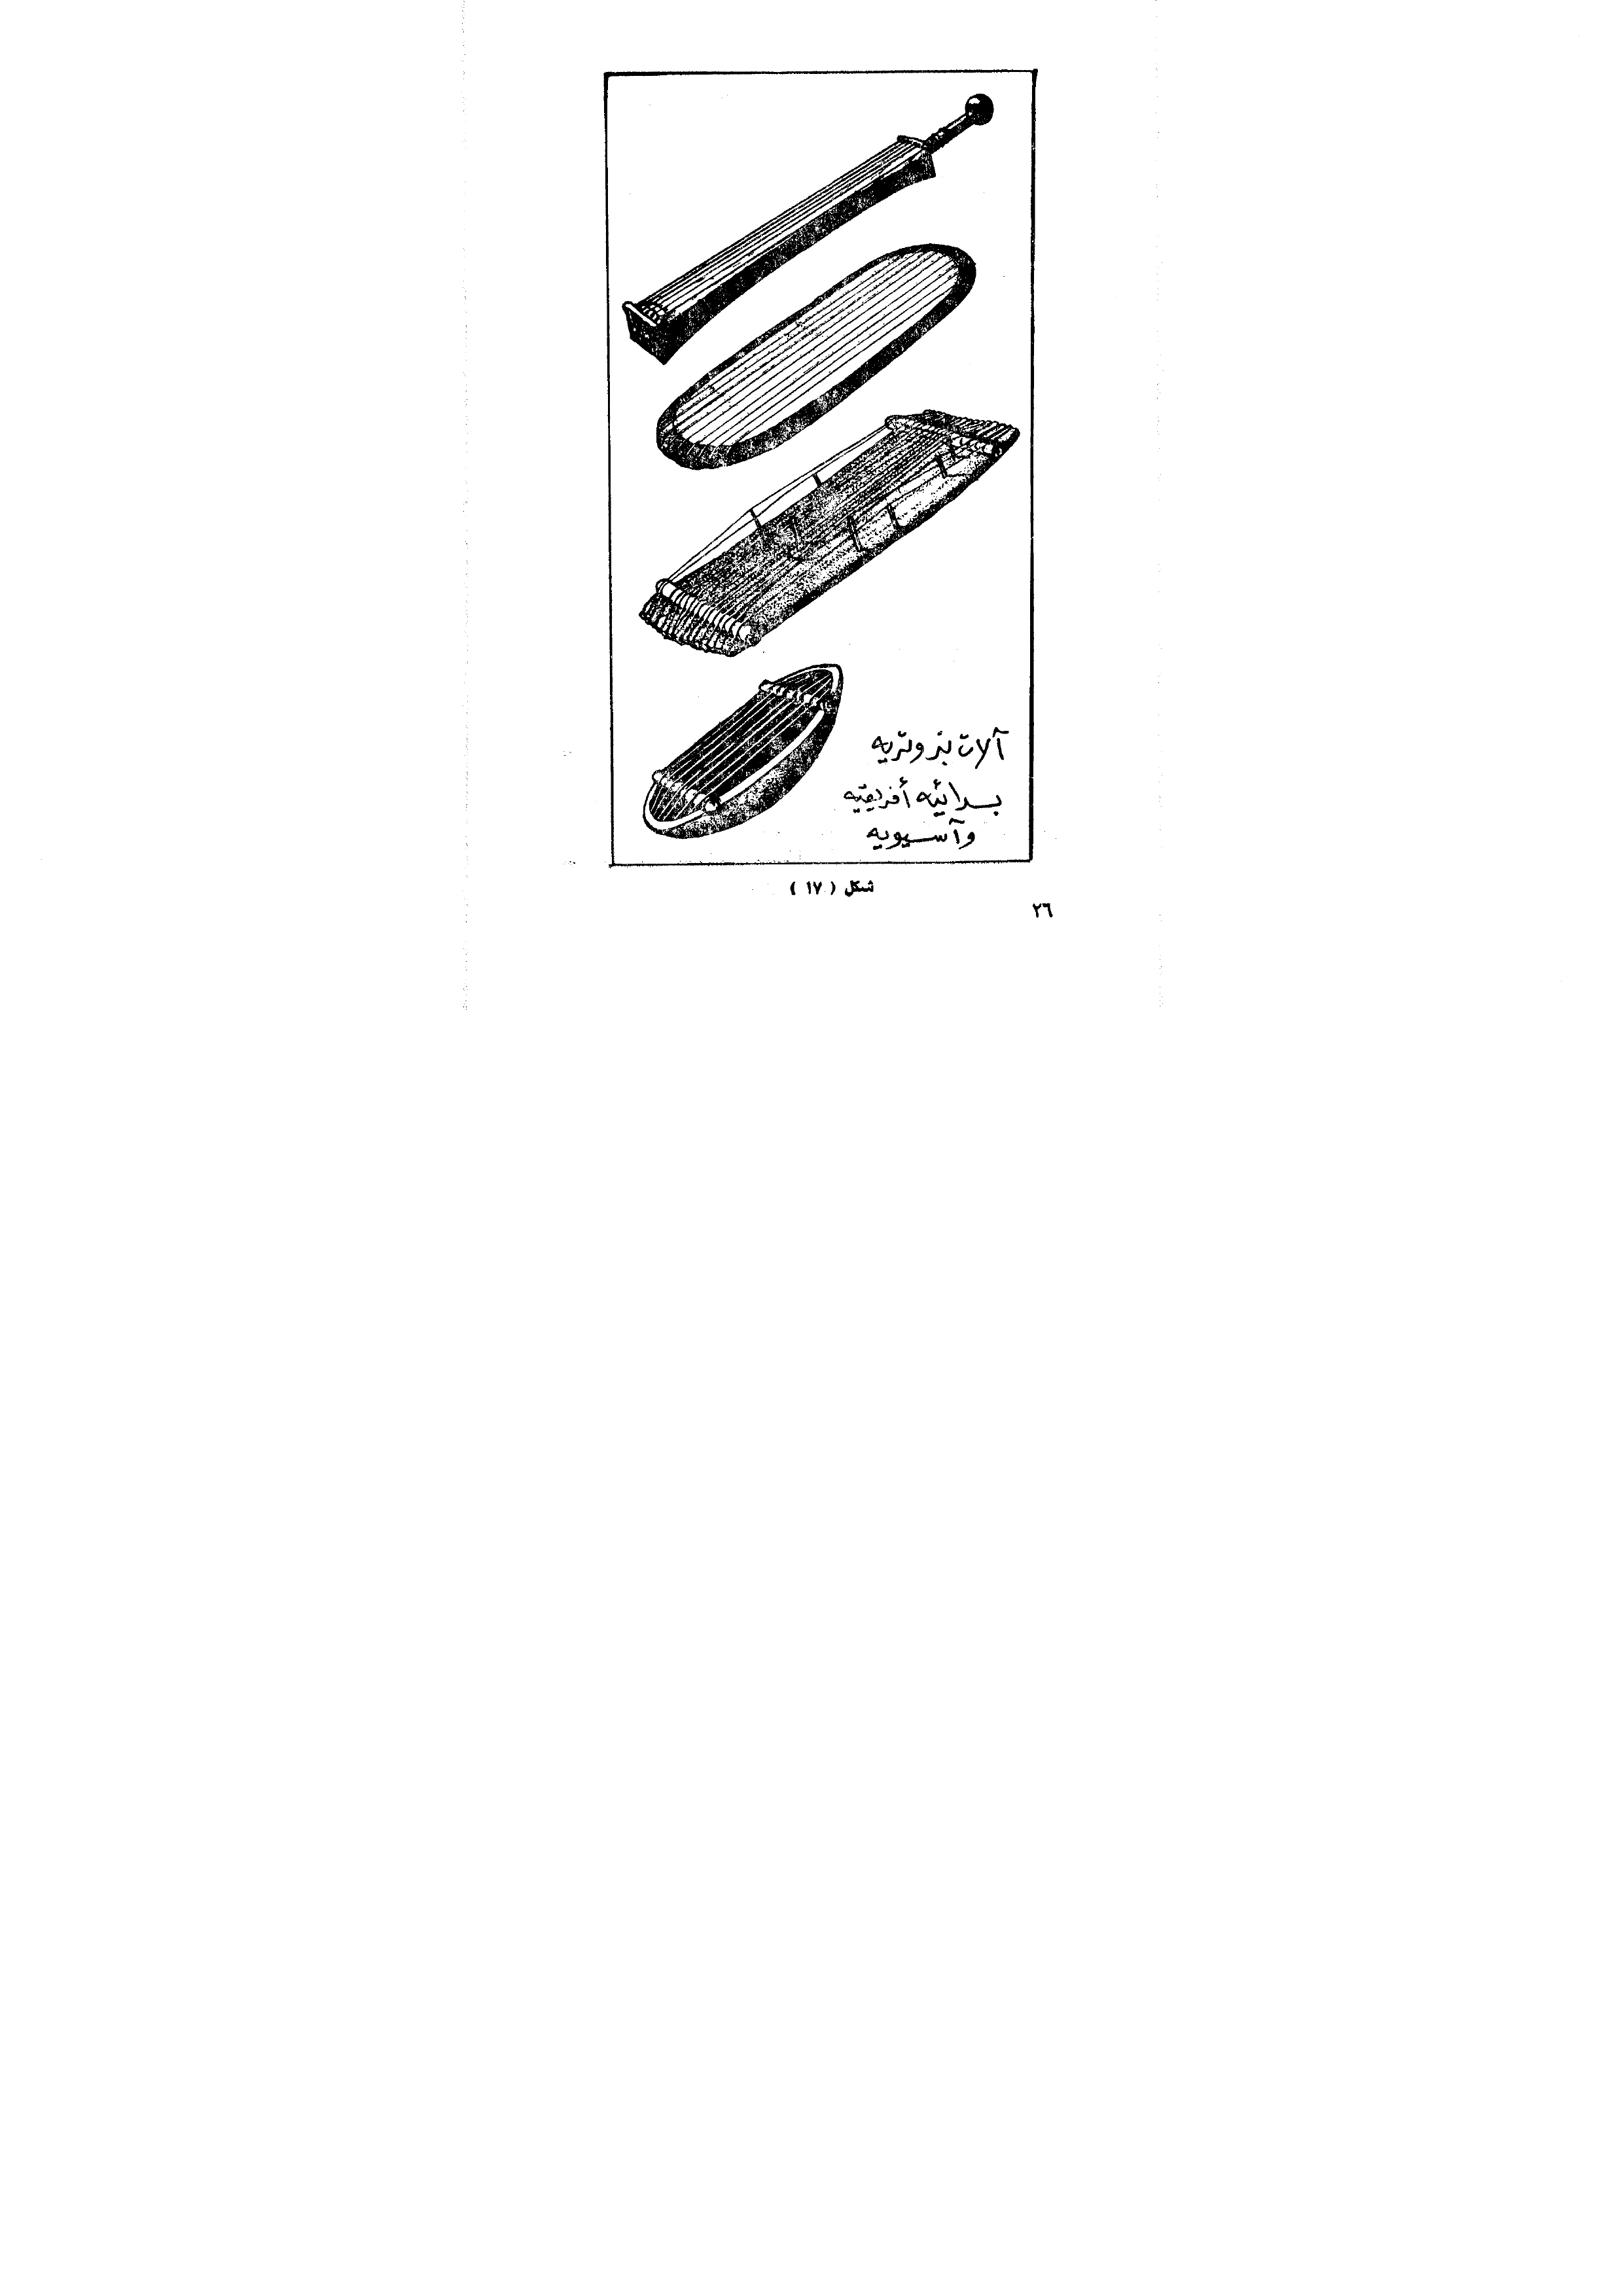 آلات نبر وتريه
بدائيه أفريقيه
وآسيويه
شكل ( ١٧ )
٢٦